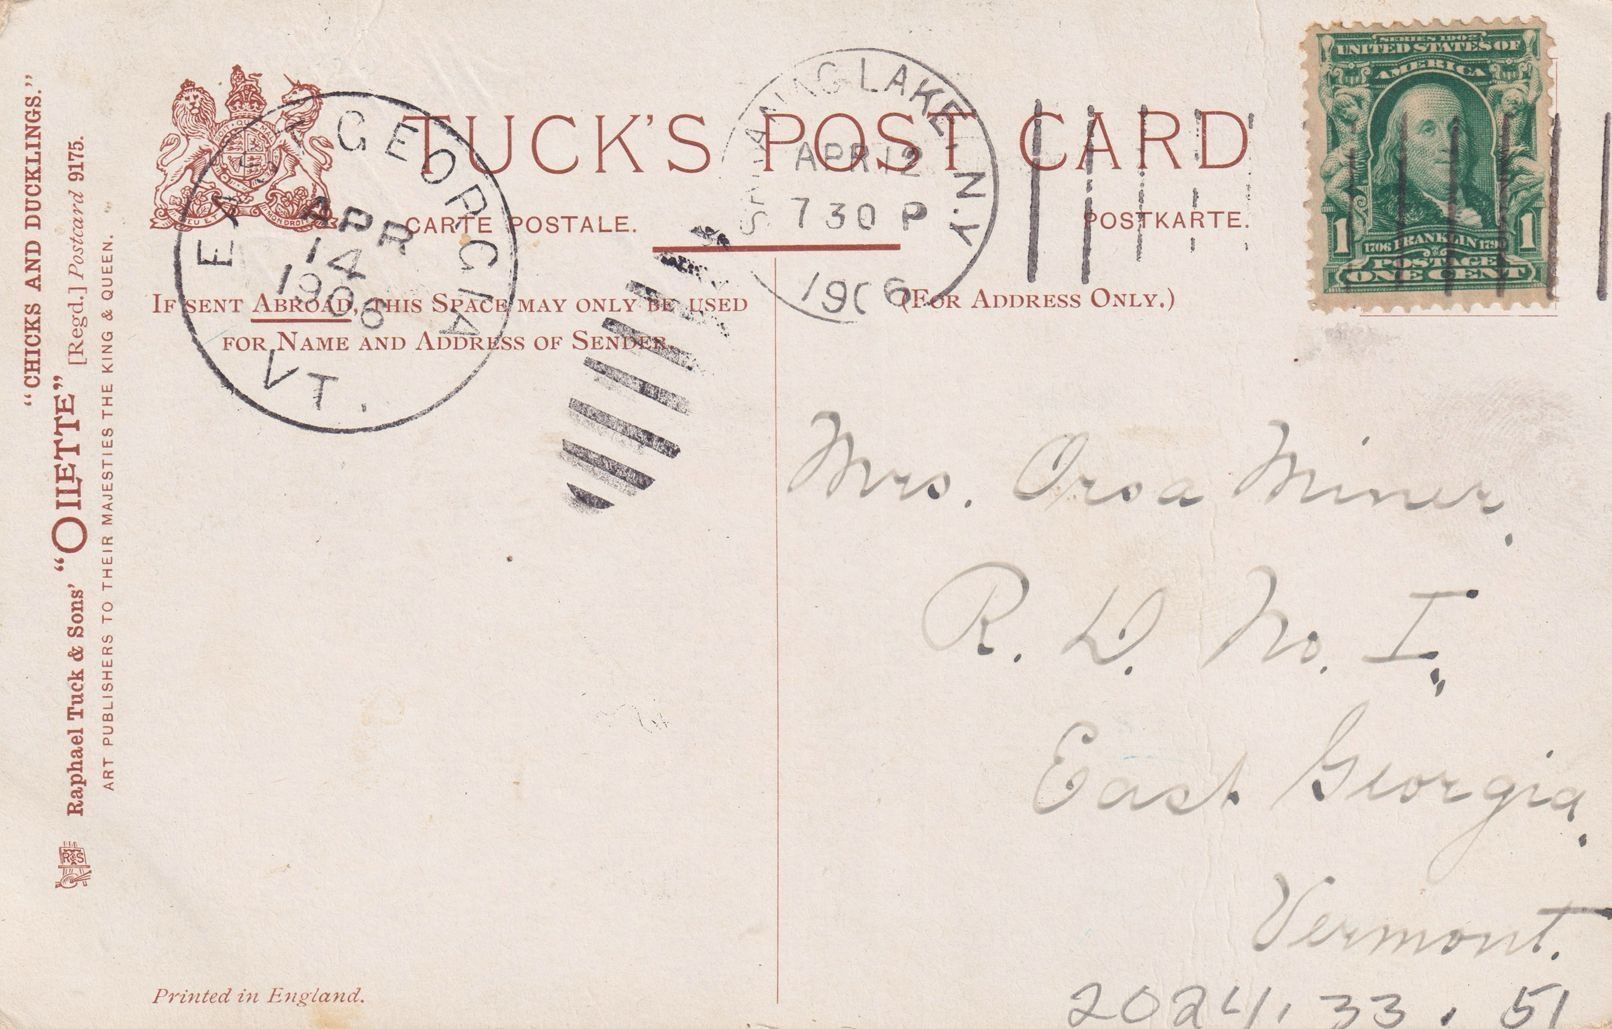 "CHICKS AND DUCKLINGS."
Raphael Tuck & Sons' "OILETTE" [Regd.] Postcard 9175.
ART PUBLISHERS TO THEIR MAJESTIES THE KING & QUEEN.
TUCK'S POST CARD
CARTE POSTALE.
POSTKARTE.
IF SENT ABROAD, THIS SPACE MAY ONLY BE USED
FOR NAME AND ADDRESS OF SENDER.
(FOR ADDRESS ONLY.)
EAST GEORGIA
APR
14
1906
VT.
LAKE, N.Y
APR 12
7 30 P
1906
SERIES 1902
UNITED STATES OF
AMERICA
1 1706 FRANKLIN 1790 1
POSTAGE
ONE CENT
Mrs. Orsa Miner,
R. D. No. I,
East Georgia,
Vermont.
2024.33.51
Printed in England.